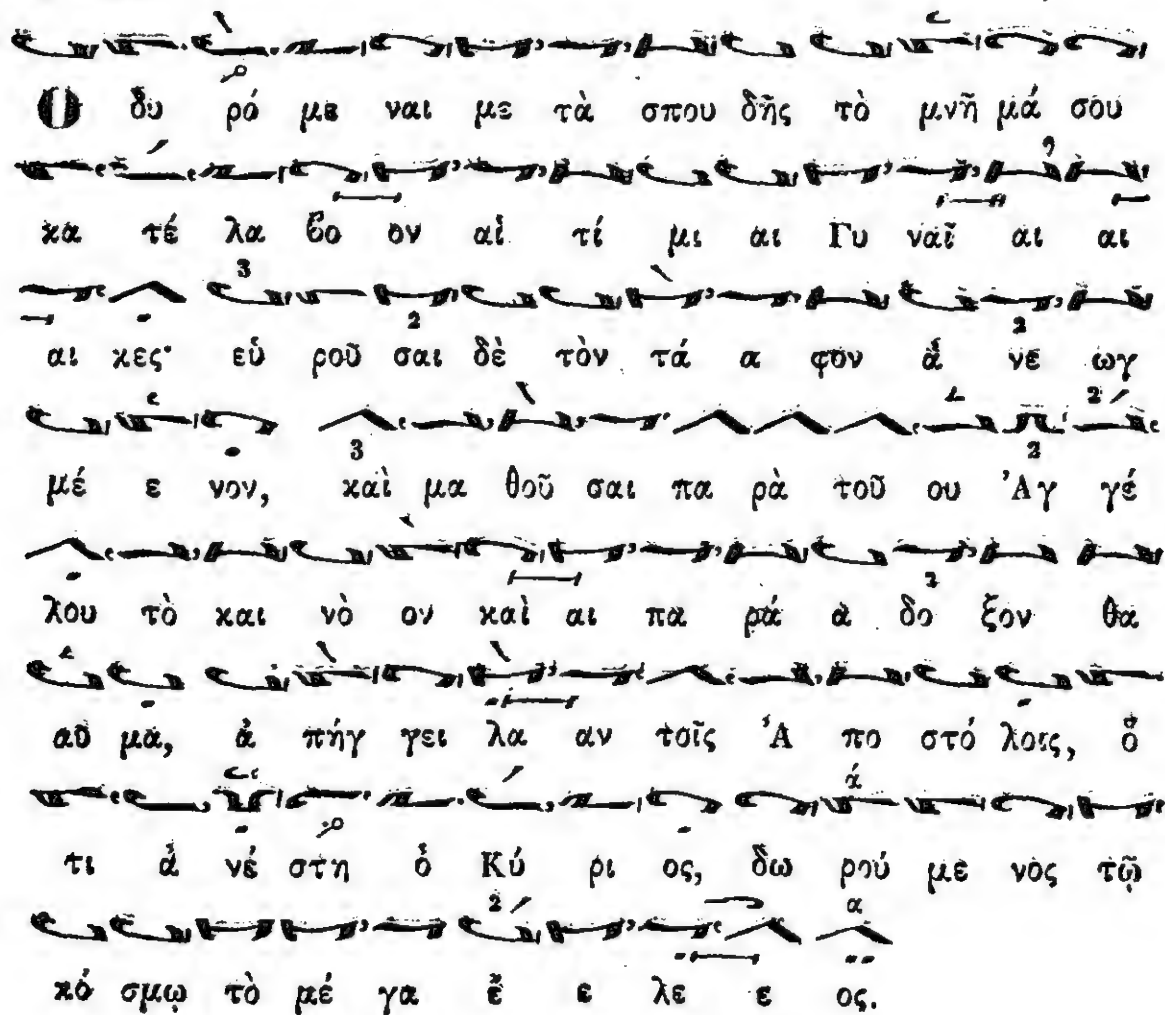 Ο δυ ρό με ναι με τὰ σπου δῆς τὸ μνῆ μά σου
κα τέ λα βο ον αἱ τί μι αι Γυ ναῖ αι αι
αι κες· εὑ ροῦ σαι δὲ τὸν τά α φον ἀ νε ῳγ
μέ ε νον, καὶ μα θοῦ σαι πα ρὰ τοῦ ου Ἀγ γέ
λου τὸ και νὸ ον καὶ αι πα ρά α δο ξον θα
αῦ μα, ἀ πήγ γει λα αν τοῖς Ἀ πο στό λοις, ὅ
τι ἀ νέ στη ὁ Κύ ρι ος, δω ρού με νος τῷ
κό σμῳ τὸ μέ γα ἔ ε λε ε ος.